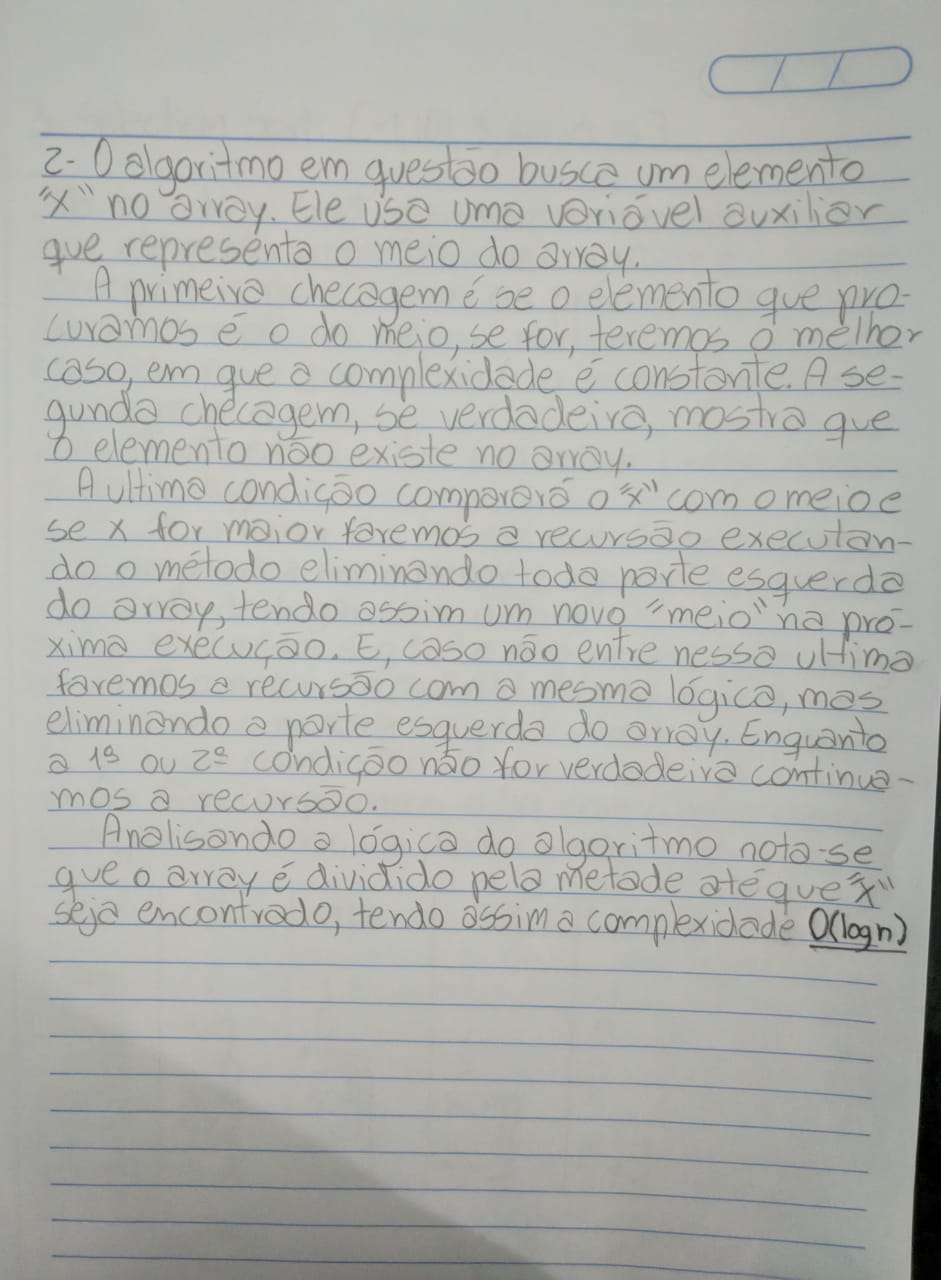 2- O algoritmo em questão busca um elemento
"x" no array. Ele usa uma variável auxiliar
que representa o meio do array.
A primeira checagem é se o elemento que pro-
curamos é o do meio, se for, teremos o melhor
caso, em que a complexidade é constante. A se-
gunda checagem, se verdadeira, mostra que
o elemento não existe no array.
A ultima condição comparará o "x" com o meio e
se x for maior faremos a recursão executan-
do o método eliminando toda parte esquerda
do array, tendo assim um novo "meio" na pró-
xima execução. E, caso não entre nessa ultima
faremos a recursão com a mesma lógica, mas
eliminando a parte esquerda do array. Enquanto
a 1ª ou 2ª condição não for verdadeira continua-
mos a recursão.
Analisando a lógica do algoritmo nota-se
que o array é dividido pela metade até que "x"
seja encontrado, tendo assim a complexidade O(logn)